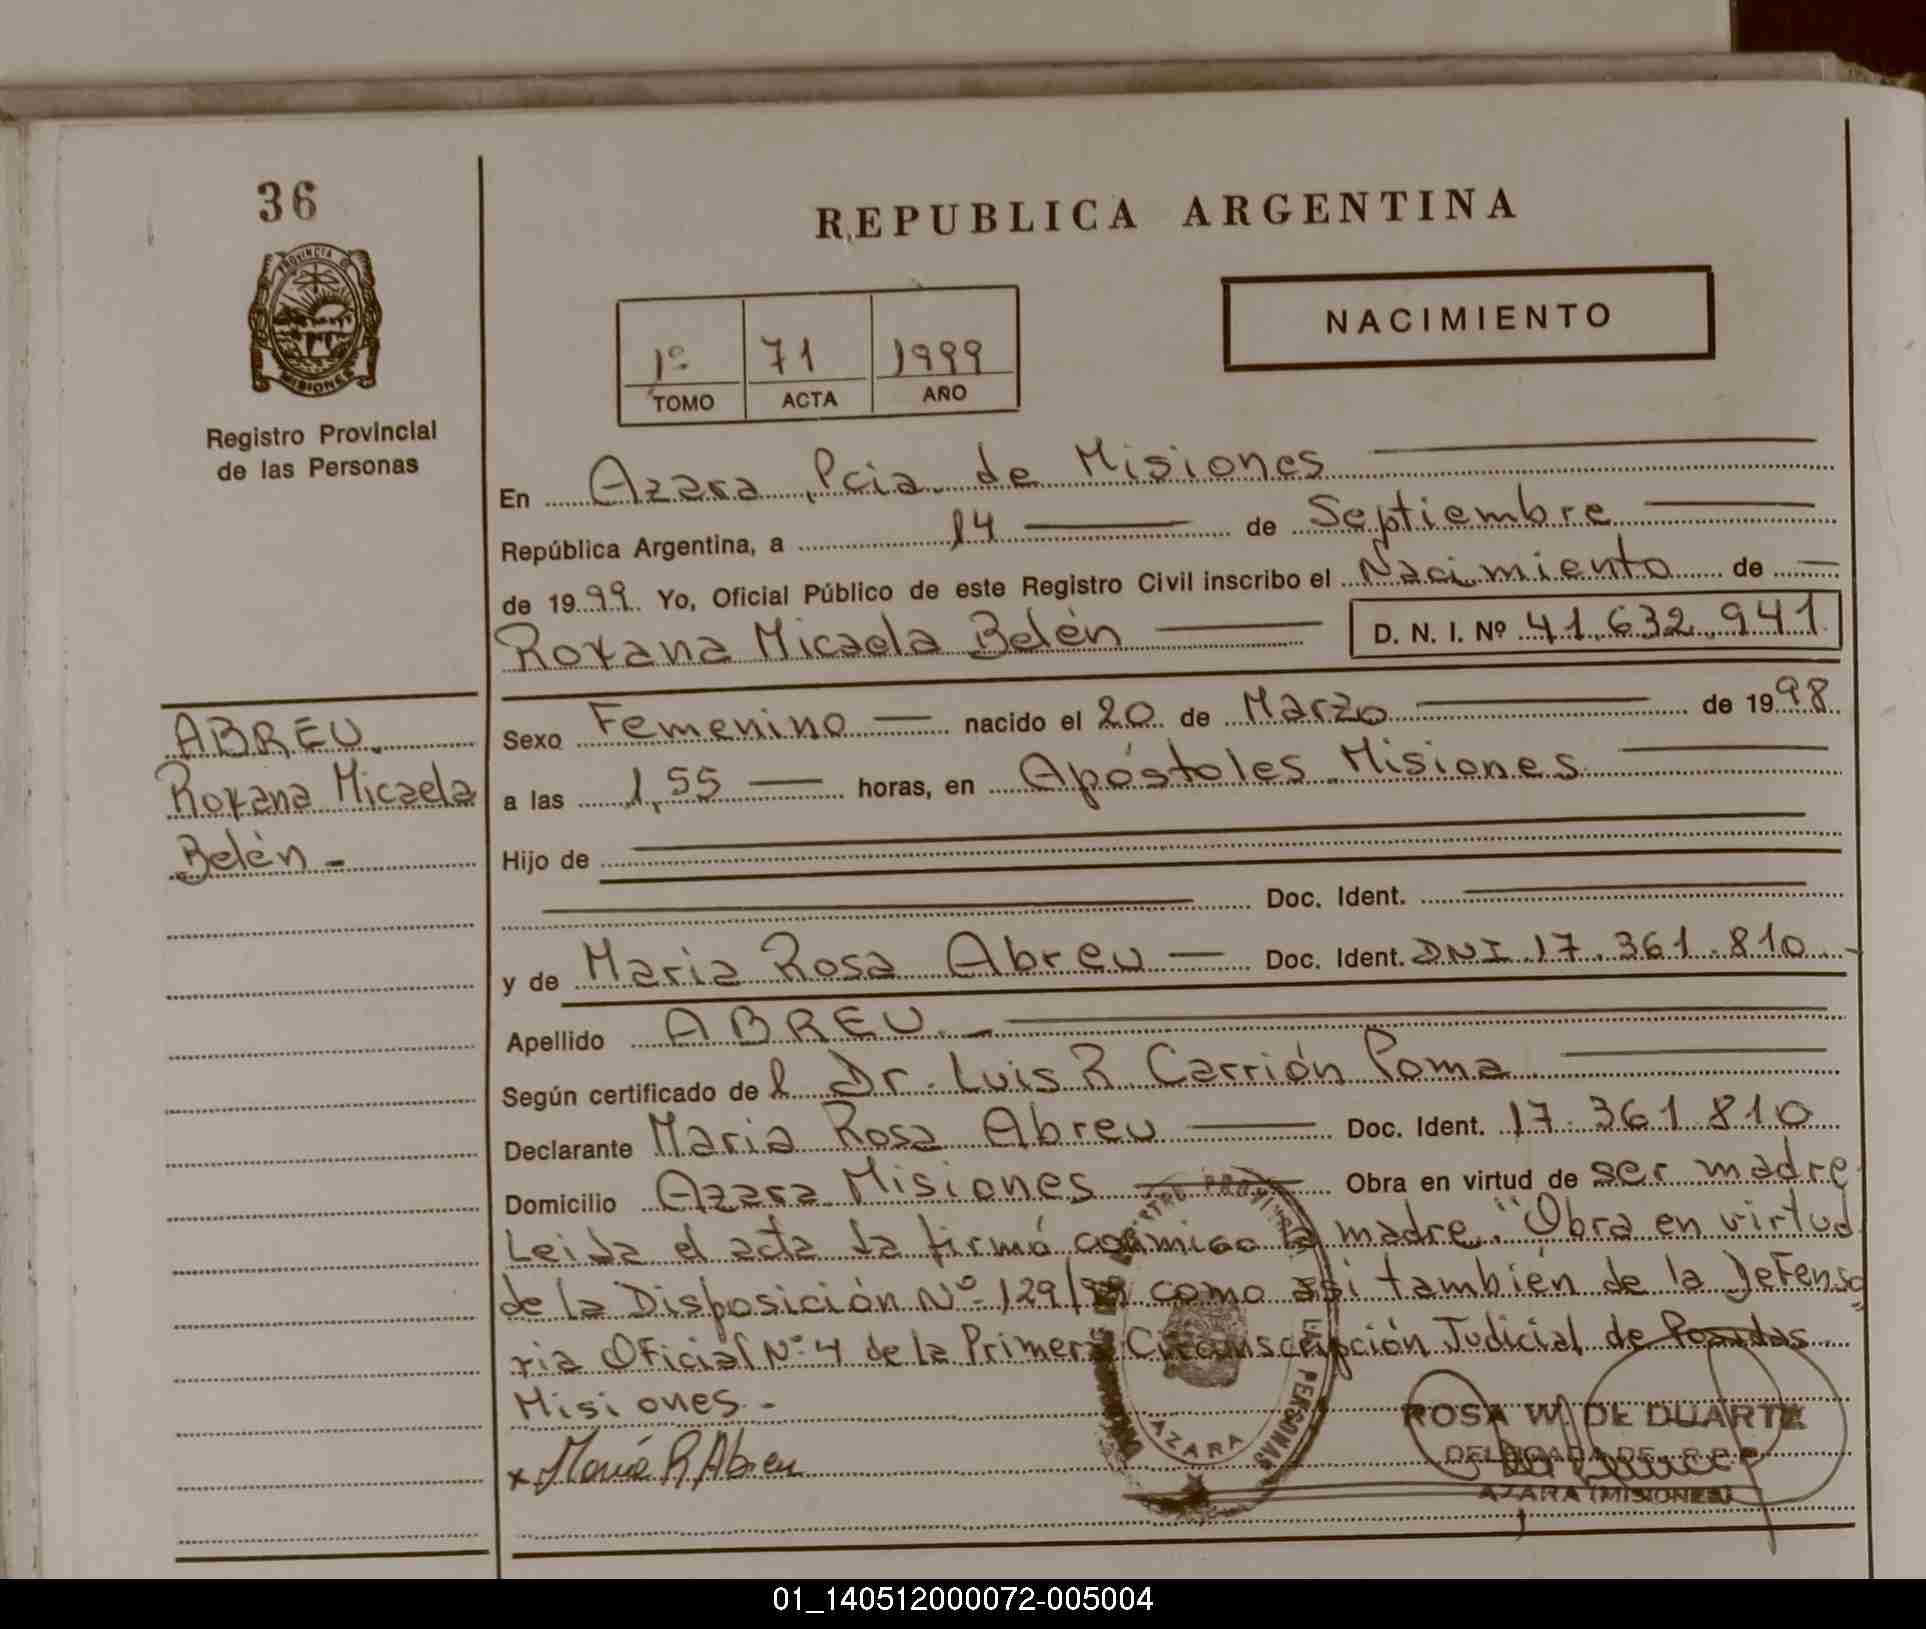 36
REPUBLICA ARGENTINA
PROVINCIA D
MISIONES
Registro Provincial
de las Personas
NACIMIENTO
1º 71 1999
TOMO ACTA AÑO
En Azara, Pcia. de Misiones
República Argentina, a 14 de Septiembre
de 1999 Yo, Oficial Público de este Registro Civil inscribo el Nacimiento de
Roxana Micaela Belén D. N. I. Nº 41.632.941
ABREU.
Roxana Micaela
Belén -
Sexo Femenino nacido el 20 de Marzo de 1998
a las 1,55 horas, en Apóstoles Misiones
Hijo de
Doc. Ident.
y de Maria Rosa Abreu Doc. Ident. DNI 17.361.810
Apellido ABREU. -
Según certificado del Dr. Luis R Carrión Poma
Declarante Maria Rosa Abreu Doc. Ident. 17.361.810
Domicilio Azara Misiones Obra en virtud de ser madre
Leida el acta la firmó conmigo la madre. "Obra en virtud
de la Disposición Nº 129/99 como asi también de la Defenso
ria Oficial Nº 4 de la Primera Circunscripción Judicial de Posadas
Misiones. -
x Maria R Abreu
LAS PERSONAS
AZARA
ROSA W. DE DUARTE
DELEGADA DE R.P.P.
AZARA (MISIONES)
01_140512000072-005004